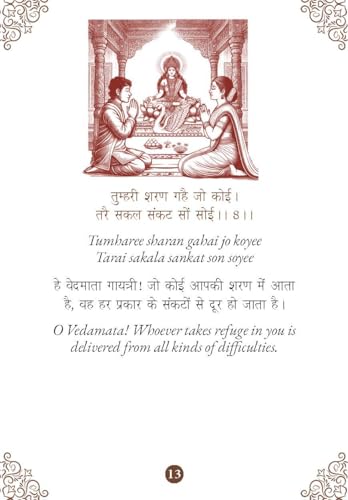 तुम्हरी शरण गहै जो कोई।
तरै सकल संकट सों सोई।। 8।।
Tumharee sharan gahai jo koyee
Tarai sakala sankat son soyee
हे वेदमाता गायत्री! जो कोई आपकी शरण में आता
है, वह हर प्रकार के संकटों से दूर हो जाता है।
O Vedamata! Whoever takes refuge in you is
delivered from all kinds of difficulties.
13